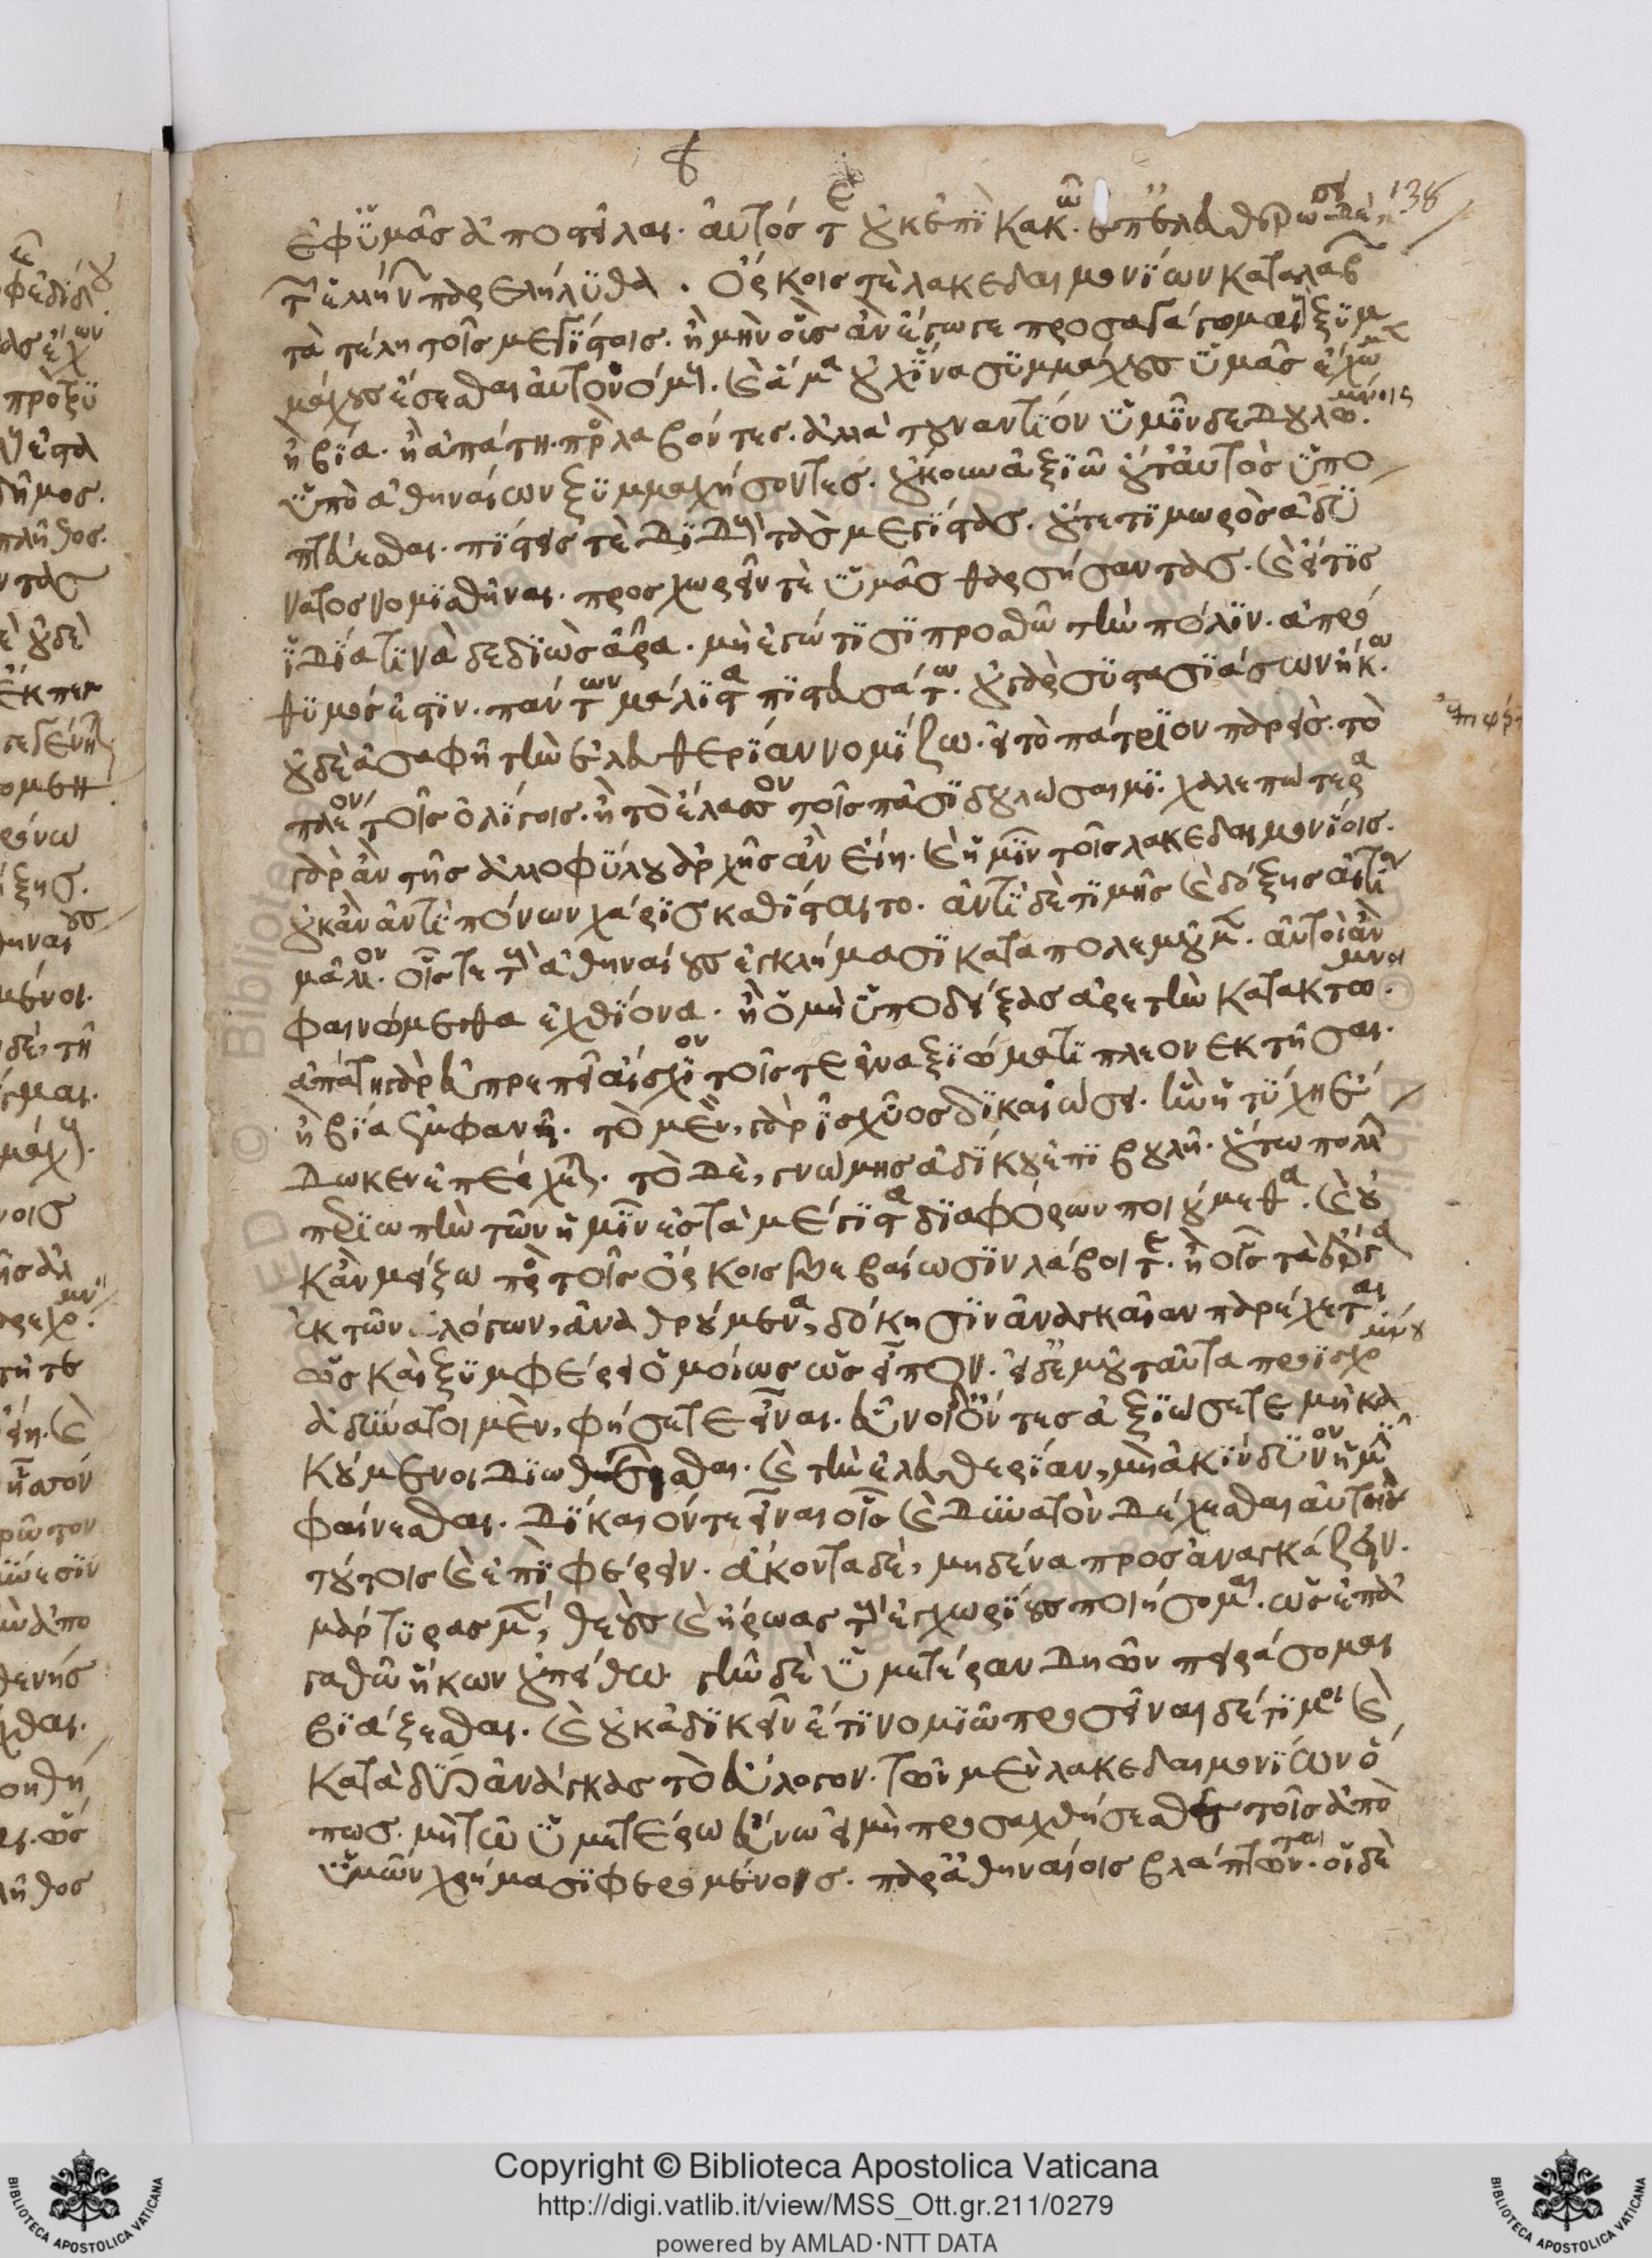 138
ἐφ ὑμᾶς ἀποστεῖλαι. αὐτός τε οὐκ ἐπὶ κακῶ. ἐπ ἐλευθερώσει δὲ
τῶν ἑλλήνων παρελήλυθα. ὅρκοις τὲ λακεδαιμονίων καταλαβὼν
τὰ τέλη τοῖς μεγίστοις. ἦ μὴν οὓς ἂν ἔγωγε προσαγάγωμαι ξυμ
μάχους ἔσεσθαι αὐτονόμους. καὶ ἅμα οὐχ ἵνα συμμάχους ὑμᾶς ἔχωμεν
ἢ βία. ἢ ἀπάτη. προσλαβόντες. ἀλλὰ τουναντίον ὑμῖν δεδουλωμένοις
ὑπὸ ἀθηναίων ξυμμαχήσοντες. οὔκουν ἀξιῶ οὔτ αὐτὸς ὑπο
πτεύεσθαι. πίστεις τὲ διδοὺς τὰς μεγίστας. οὔτε τιμωρὸς ἀδύ
νατος νομισθῆναι. προσχωρεῖν τὲ ὑμᾶς θαρσήσαντας. καὶ εἴ τις
ἰδία τινὰ δεδιὼς ἄρα. μὴ ἐγώ τισι προσθῶ τὴν πόλιν. ἀπρό
θυμός ἐστιν. πάντων μάλιστα πιστευσάτω. οὐ γὰρ συστασιάσων ἥκω.
οὐδὲ ἀσαφῆ τὴν ἐλευθερίαν νομίζω. εἰ τὸ πάτριον παρεὶς. τὸ
πλέον τοῖς ὀλίγοις. ἢ τὸ ἔλασσον τοῖς πᾶσι δουλώσαιμι. χαλεπωτέρα
γὰρ ἂν τῆς ἀλλοφύλου ἀρχῆς ἂν εἴη. καὶ ἡμῖν τοῖς λακεδαιμονίοις.
οὐκ ἂν ἀντὶ πόνων χάρις καθίσταιτο. ἀντὶ δὲ τιμῆς καὶ δόξης αἰτία
μᾶλλον. οἷς τε τοὺς ἀθηναίους ἐγκλήμασι καταπολεμοῦμεν. αὐτοὶ ἂν
φαινοίμεθα ἐχθίονα. ἢ ὁ μὴ ὑποδείξας ἀρετὴν κατακτώμενοι.
ἀπάτη γὰρ εὐπρεπεῖ αἴσχιον τοῖς τε ἐν ἀξιώματι πλεονεκτῆσαι.
ἢ βία ἐμφανεῖ. τὸ μὲν, γὰρ ἰσχύος δικαιώσει. ἣν ἡ τύχη ἔ
δωκεν ἐπέρχεται. τὸ δὲ, γνώμης ἀδίκου ἐπιβουλῆ. οὕτω πολλὴν
περιωπὴν τῶν ἡμῖν ἐς τὰ μέγιστα διαφόρων ποιούμεθα. καὶ οὐ
κἂν μείζω πρὸς τοῖς ὅρκοις βεβαίωσιν λάβοιτε. ἢ οἷς τὰ ἔργα
ἐκ τῶν λόγων, ἀναθρούμενα, δόκησιν ἀναγκαῖαν παρέχεται.
ὡς καὶ ξυμφέρει ὁμοίως ὡς εἶπον. εἰ δέ μου ταῦτα προϊσχομένου
ἀδύνατοι μὲν, φήσετε εἶναι. εὖνοι δ ὄντες ἀξιώσετε μὴ κα
κούμενοι διωθεῖσθαι. καὶ τὴν ἐλευθερίαν, μὴ ἀκίνδυνον ὑμῖν
φαίνεσθαι. δίκαιόν τε εἶναι οἷς καὶ δυνατὸν δέχεσθαι αὐτὴν
τούτοις καὶ ἐπιφέρειν. ἄκοντα δὲ, μηδένα προσαναγκάζειν.
μάρτυρας μὲν, θεοὺς καὶ ἥρωας τοὺς ἐγχωρίους ποιήσομαι. ὡς ἐπ ἀ
γαθῶ ἥκων οὐ πείθω. γῆν δὲ ὑμετέραν δηῶν πειράσομαι
βιάζεσθαι. καὶ οὐκ ἀδικεῖν ἔτι νομιῶ προσεῖναι δέ τι μοι καὶ
κατὰ δύο ἀνάγκας τὸ εὔλογον. τῶν μὲν λακεδαιμονίων ὅ
πως. μὴ τῶ ὑμετέρω εὔνω εἰ μὴ προσαχθήσεσθε τοῖς ἀπὸ
ὑμῶν χρήμασι φερομένοις. παρ ἀθηναίοις βλάπτωνται. οἱ δὲ